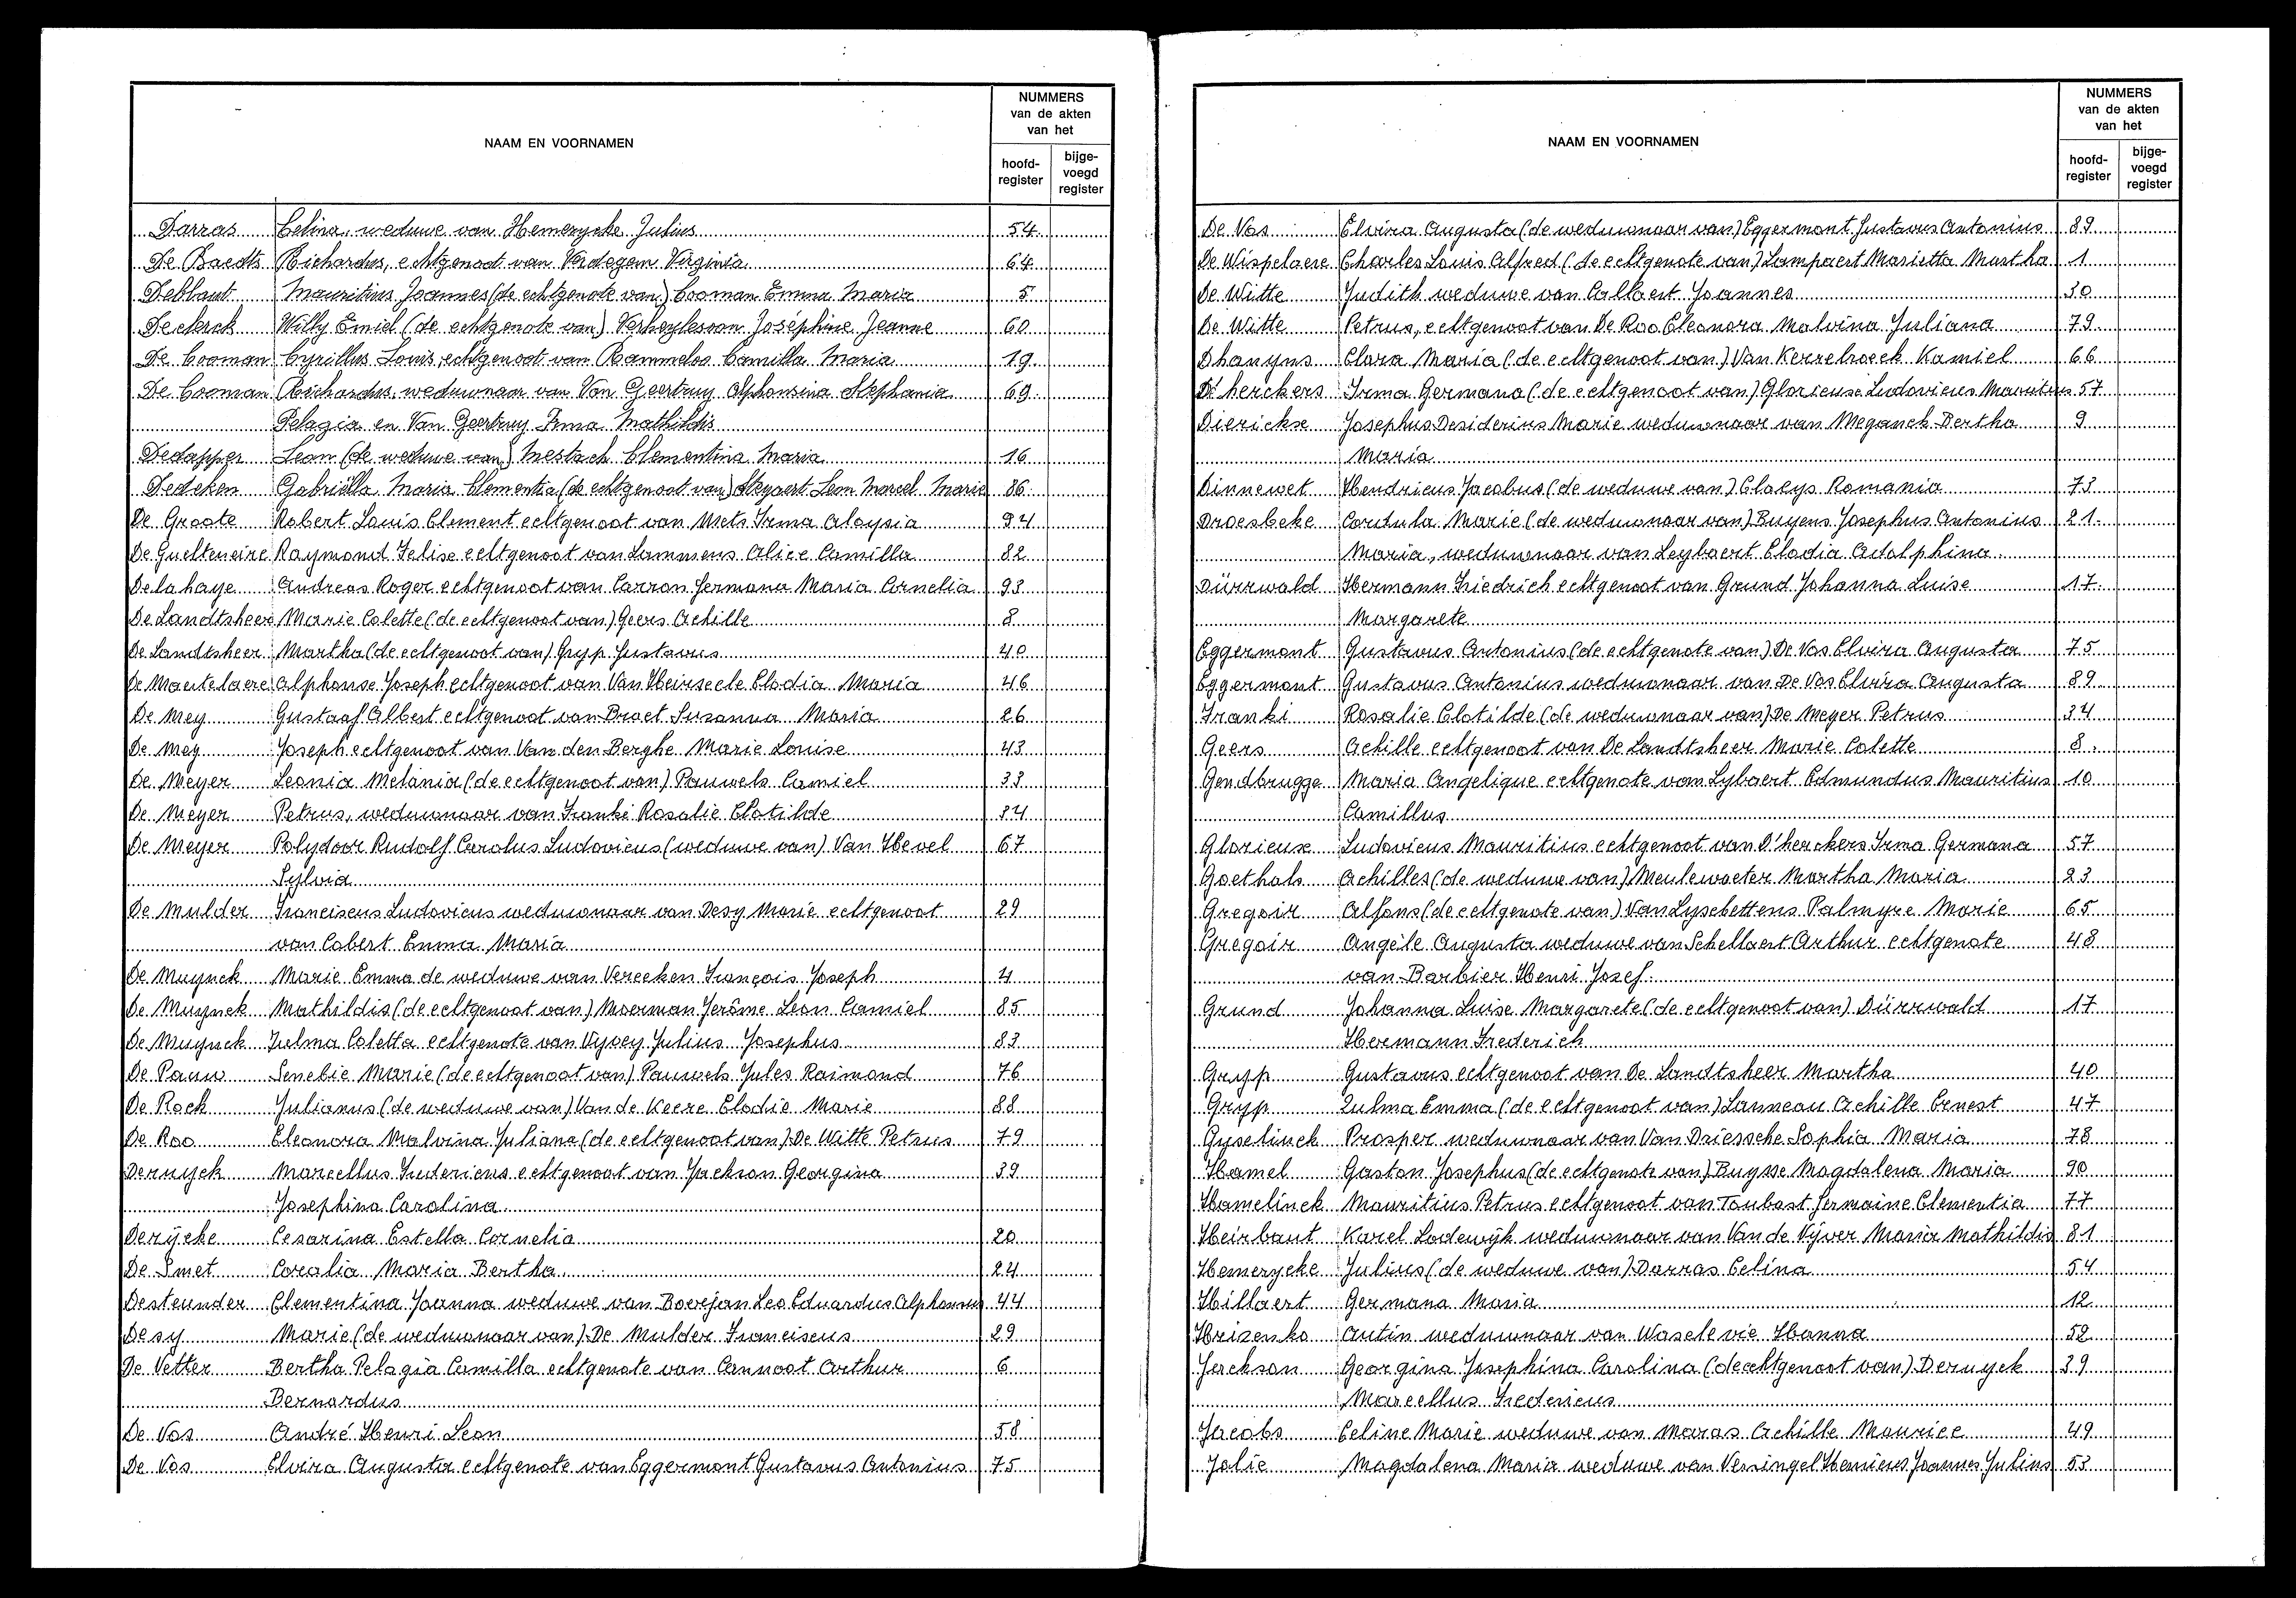 NAAM EN VOORNAMEN
NUMMERS
van de akten
van het
hoofd-
register
bijge-
voegd
register
Darras Celina, weduwe van Hemerycke Julius 54
De Baedts Richardus, echtgenoot van Verdegem Virginia 64
Deblaut Mauritius Joannes (de echtgenote van) Cooman Emma Maria 5
Declerck Willy Emiel (de echtgenote van) Verheylesoon Joséphine Jeanne 60
De Cooman Cyrillus Louis, echtgenoot van Rammeloo Camilla Maria 19
De Cooman Richardus, weduwnaar van Van Geertruy Alphonsina Stephania 69
Pelagia en Van Geertruy Irma Mathildis
Dedapper Leon (de weduwe van) Mestach Clementina Maria 16
Dedeken Gabriëlla Maria Clementia (de echtgenoot van) Steyaert Leon Marcel Marie 86
De Groote Robert Louis Clement echtgenoot van Mets Irma Aloysia 94
De Guelteneire Raymond Felise echtgenoot van Lammens Alice Camilla 82
Delahaye Andreas Roger echtgenoot van Carron Germana Maria Cornelia 93
De Landtsheer Marie Colette (de echtgenoot van) Geers Achille 8
De Landtsheer Martha (de echtgenoot van) Gryp Gustavus 40
De Mautelaere Alphonse Joseph echtgenoot van Van Heirseele Elodia Maria 46
De Mey Gustaaf Albert echtgenoot van Braet Suzanna Maria 26
De Mey Joseph echtgenoot van Van den Berghe Marie Louise 43
De Meyer Leonia Melania (de echtgenoot van) Pauwels Camiel 33
De Meyer Petrus, weduwnaar van Franki Rosalie Clotilde 34
De Meyer Polydoor Rudolf Carolus Ludovicus (weduwe van) Van Hevel 67
Sylvia
De Mulder Franciscus Ludovicus weduwnaar van Desy Marie echtgenoot 29
van Cobert Emma Maria
De Muynck Marie Emma de weduwe van Vereecken François Joseph 4
De Muynck Mathildis (de echtgenoot van) Moerman Jerôme Leon Camiel 85
De Muynck Zulma Coletta echtgenote van Vyvey Julius Josephus 83
De Pauw Senebie Marie (de echtgenoot van) Pauwels Jules Raimond 76
De Rock Julianus (de weduwe van) Van de Keere Elodie Marie 88
De Roo Eleonora Malvina Juliana (de echtgenoot van) De Witte Petrus 79
Deruyck Marcellus Fredericus echtgenoot van Jackson Georgina 39
Josephina Carolina
Derÿcke Cesarina Estella Cornelia 20
De Smet Coralia Maria Bertha 24
Desteunder Clementina Joanna weduwe van Boerejan Leo Eduardus Alphonsus 44
Desy Marie (de weduwnaar van) De Mulder Franciscus 29
De Vetter Bertha Pelagia Camilla echtgenote van Cannoot Arthur 6
Bernardus
De Vos André Henri Leon 58
De Vos Elvira Augusta echtgenote van Eggermont Gustavus Antonius 75
NAAM EN VOORNAMEN
NUMMERS
van de akten
van het
hoofd-
register
bijge-
voegd
register
De Vos Elvira Augusta (de weduwnaar van) Eggermont Gustavus Antonius 89
De Wispelaere Charles Louis Alfred (de echtgenote van) Lampaert Marietta Martha 1
De Witte Judith weduwe van Callaert Joannes 30
De Witte Petrus, echtgenoot van De Roo Eleonora Malvina Juliana 79
Dhanyns Clara Maria (de echtgenoot van) Van Kerrebroeck Kamiel 66
D'herckers Irma Germana (de echtgenoot van) Glorieuse Ludovicus Mauritius 57
Dierickse Josephus Desiderius Marie weduwnaar van Meganck Bertha 9
Maria
Dinnewet Hendricus Jacobus (de weduwe van) Claeys Romania 73
Droesbeke Cordula Marie (de weduwnaar van) Buyens Josephus Antonius 21
Maria, weduwnaar van Leybaert Elodia Adolphina
Dürrwald Hermann Friedrich echtgenoot van Grund Johanna Luise 17
Margarete
Eggermont Gustavus Antonius (de echtgenote van) De Vos Elvira Augusta 75
Eggermont Gustavus Antonius weduwnaar van De Vos Elvira Augusta 89
Franki Rosalie Clotilde (de weduwnaar van) De Meyer Petrus 34
Geers Achille echtgenoot van De Landtsheer Marie Colette 8
Gendbrugge Maria Angelique echtgenote van Lybaert Edmundus Mauritius 10
Camillus
Glorieuse Ludovicus Mauritius echtgenoot van D'herckers Irma Germana 57
Goethals Achilles (de weduwe van) Meulewaeter Martha Maria 23
Gregoir Alfons (de echtgenote van) Van Lysebettens Palmyre Marie 65
Gregoir Angèle Augusta weduwe van Schellaert Arthur echtgenote 48
van Barbier Henri Jozef
Grund Johanna Luise Margarete (de echtgenoot van) Dürrwald 17
Hermann Frederich
Gryp Gustavus echtgenoot van De Landtsheer Martha 40
Gryp Zulma Emma (de echtgenoot van) Lanneau Achille Ernest 47
Gyselinck Prosper weduwnaar van Van Driessche Sophia Maria 78
Hamel Gaston Josephus (de echtgenote van) Buysse Magdalena Maria 90
Hamelinck Mauritius Petrus echtgenoot van Toubast Germaine Clementia 77
Heirbaut Karel Lodewÿk weduwnaar van Van de Vÿver Maria Mathildis 81
Hemerycke Julius (de weduwe van) Darras Celina 54
Hillaert Germana Maria 12
Hrizenko Antin weduwnaar van Waselevie Hanna 52
Jerckson Georgina Josephina Carolina (de echtgenoot van) Deruyck 39
Marcellus Fredericus
Jacobs Celine Marie weduwe van Maras Achille Maurice 49
Jolie Magdalena Maria weduwe van Versingel Henricus Joannes Julius 53